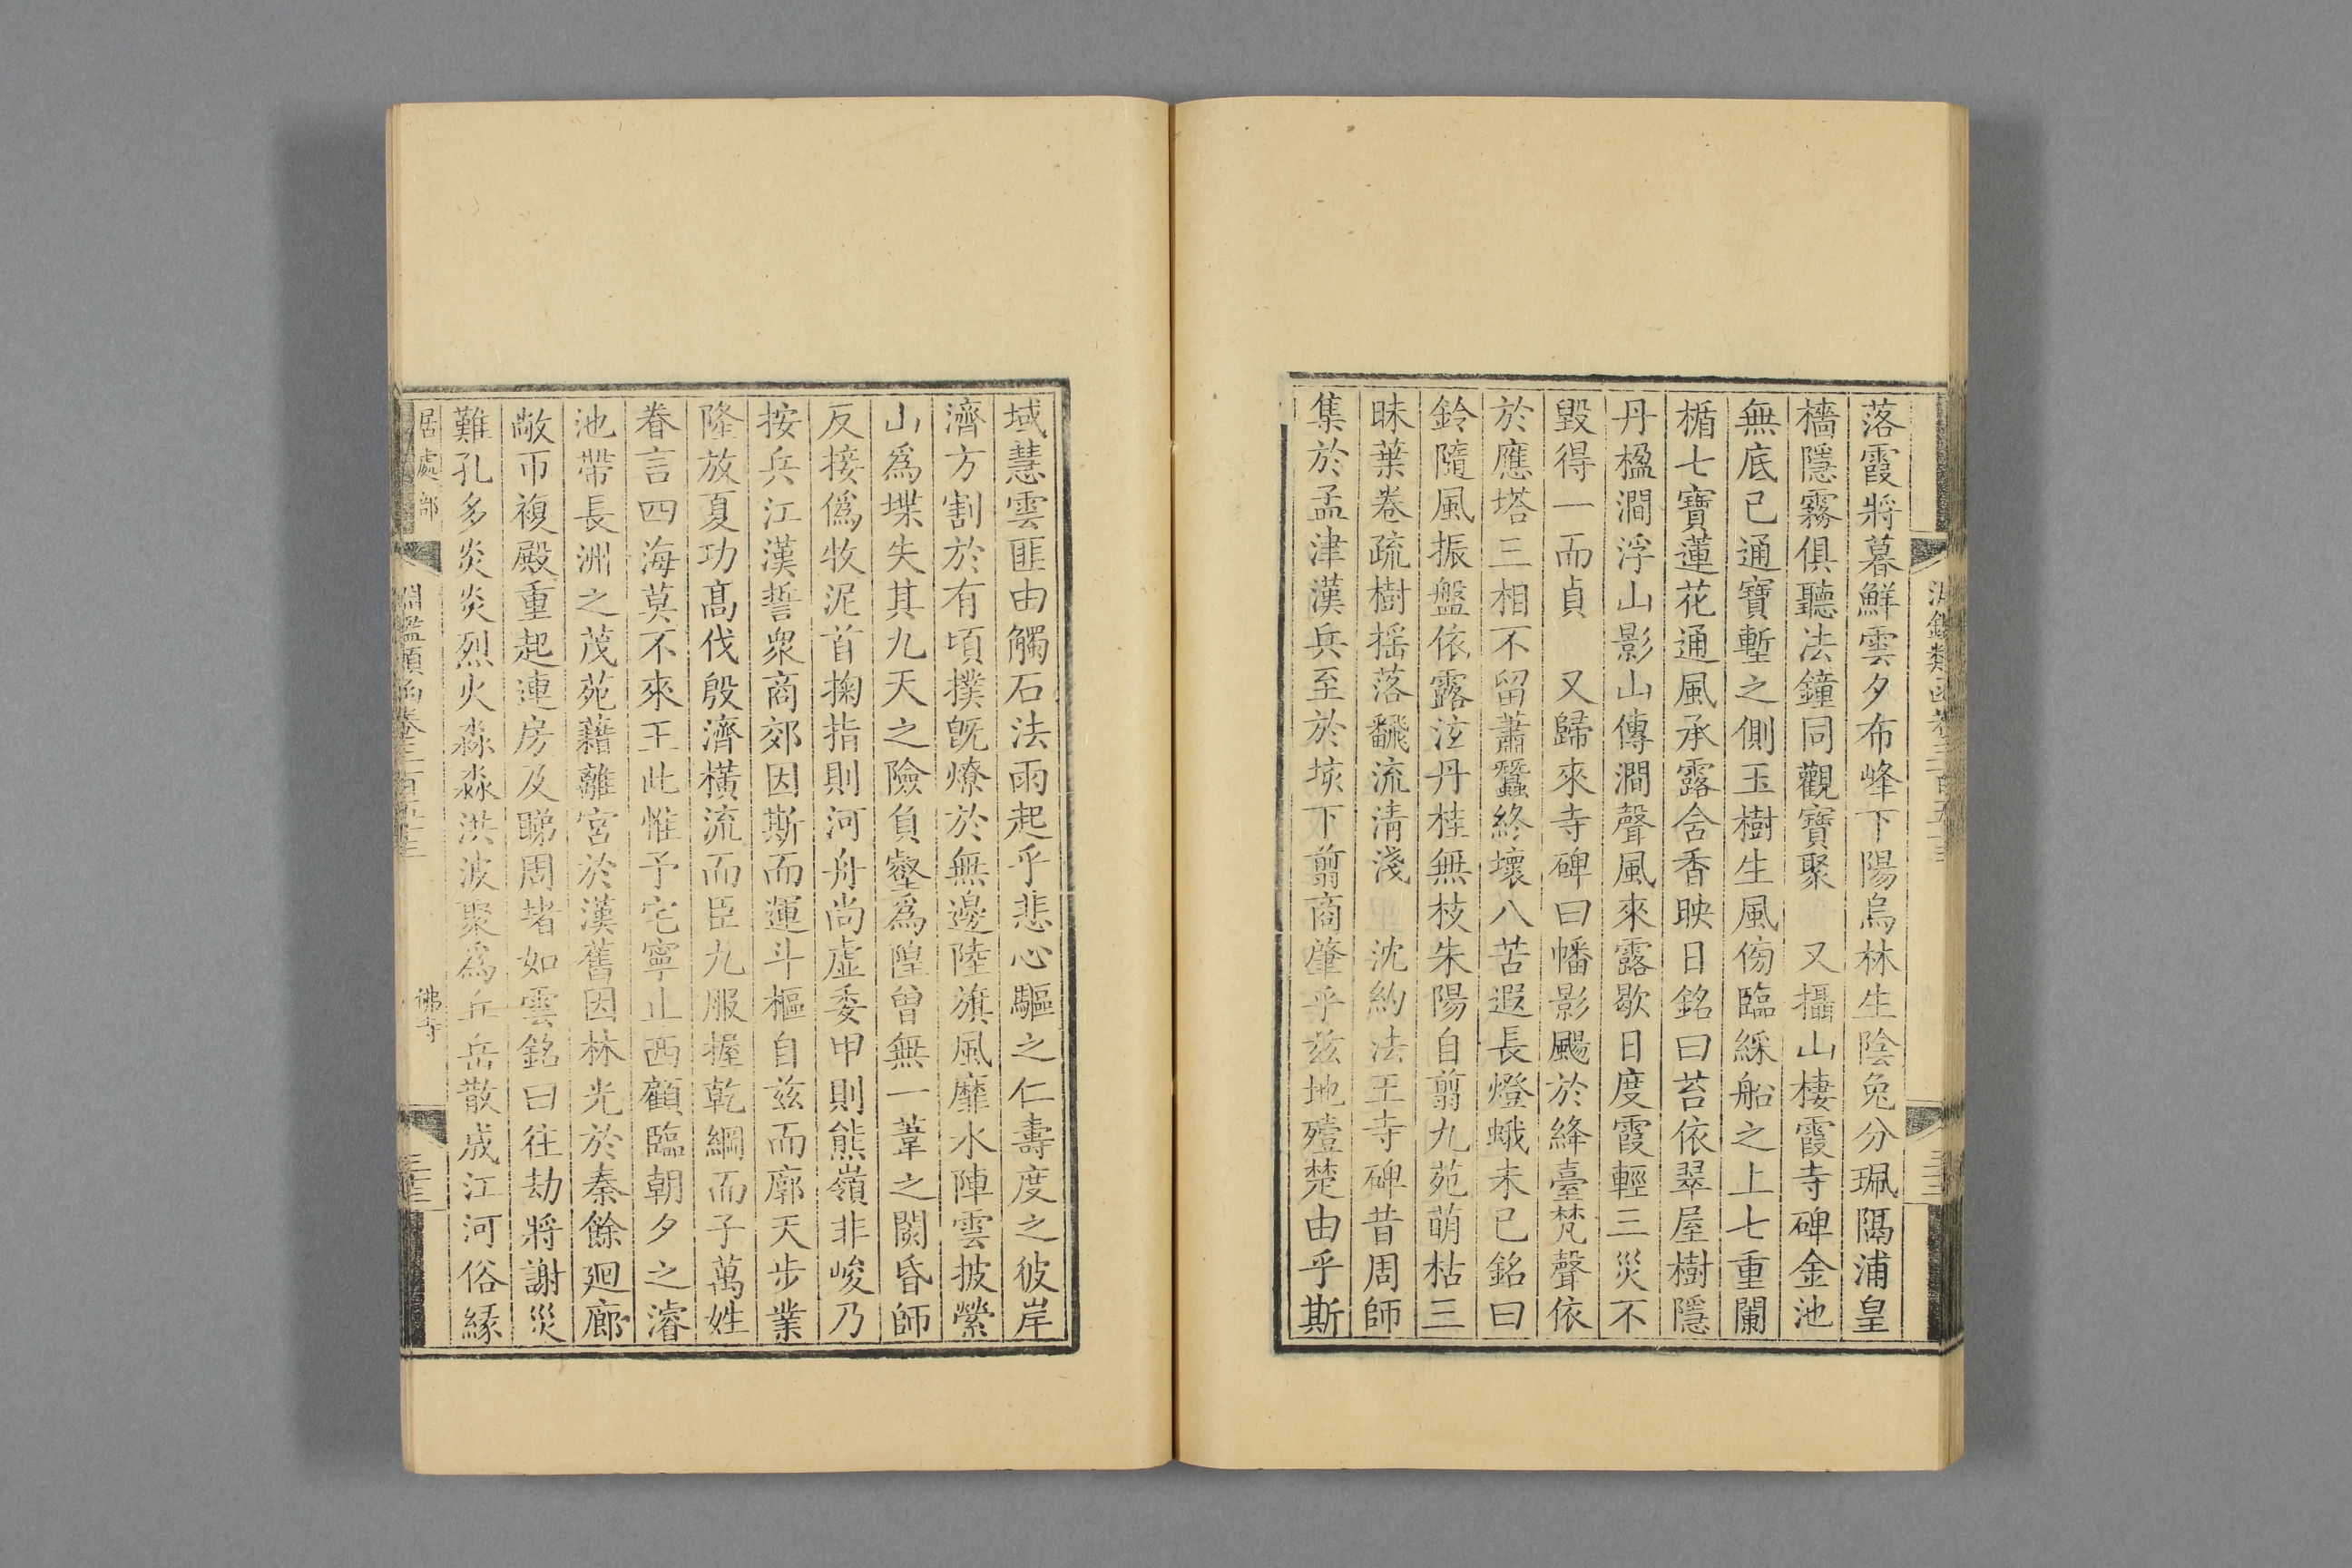 落霞將暮鮮雲夕布峰下陽烏林生陰兔分珮隔浦皇
檣隱霧俱聽法鐘同觀寶聚　又攝山棲霞寺碑金池
無底已通寶塹之側玉樹生風傍臨綵船之上七重闌
楯七寶蓮花通風承露含香映日銘曰苔依翠屋樹隱
丹楹澗浮山影山傳澗聲風來露歇日度霞輕三災不
毀得一而貞　又歸來寺碑曰幡影颺於絳臺梵聲依
於應塔三相不留蕭蠶終壞八苦遐長燈蛾未已銘曰
鈴隨風振盤依露泣丹桂無枝朱陽自翦九苑萌枯三
昧葉卷疏樹搖落飜流清淺　沈約法王寺碑昔周師
集於孟津漢兵至於垓下翦商肇乎兹地殪楚由乎斯
域慧雲匪由觸石法雨起乎悲心驅之仁壽度之彼岸
濟方割於有頃撲旣燎於無邊陸旗風靡水陣雲披縈
山爲堞失其九天之險負壑爲隍曾無一葦之闋昏師
反接僞牧泥首掬指則河舟尚虛委甲則熊嶺非峻乃
按兵江漢誓衆商郊因斯而運斗樞自兹而廓天步業
隆放夏功髙伐殷濟橫流而臣九服握乾綱而子萬姓
眷言四海莫不來王此惟予宅寧止西顧臨朝夕之濬
池帶長洲之茂苑藉離宮於漢舊因林光於秦餘廻廊
敞帀複殿重起連房及睇周堵如雲銘曰往劫將謝災
難孔多炎炎烈火淼淼洪波聚爲丘岳散成江河俗緣
居處部　淵鑑類函卷三百五十三　佛寺　三十三